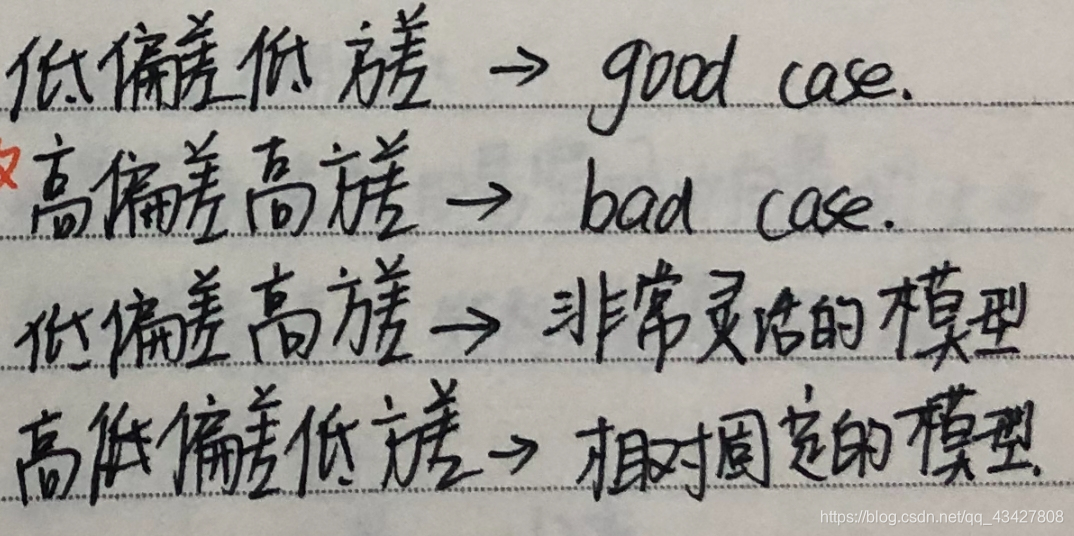 低偏差低方差 → good case.
高偏差高方差 → bad case.
低偏差高方差 → 非常灵活的模型
高低偏差低方差 → 相对固定的模型.
https://blog.csdn.net/qq_43427808